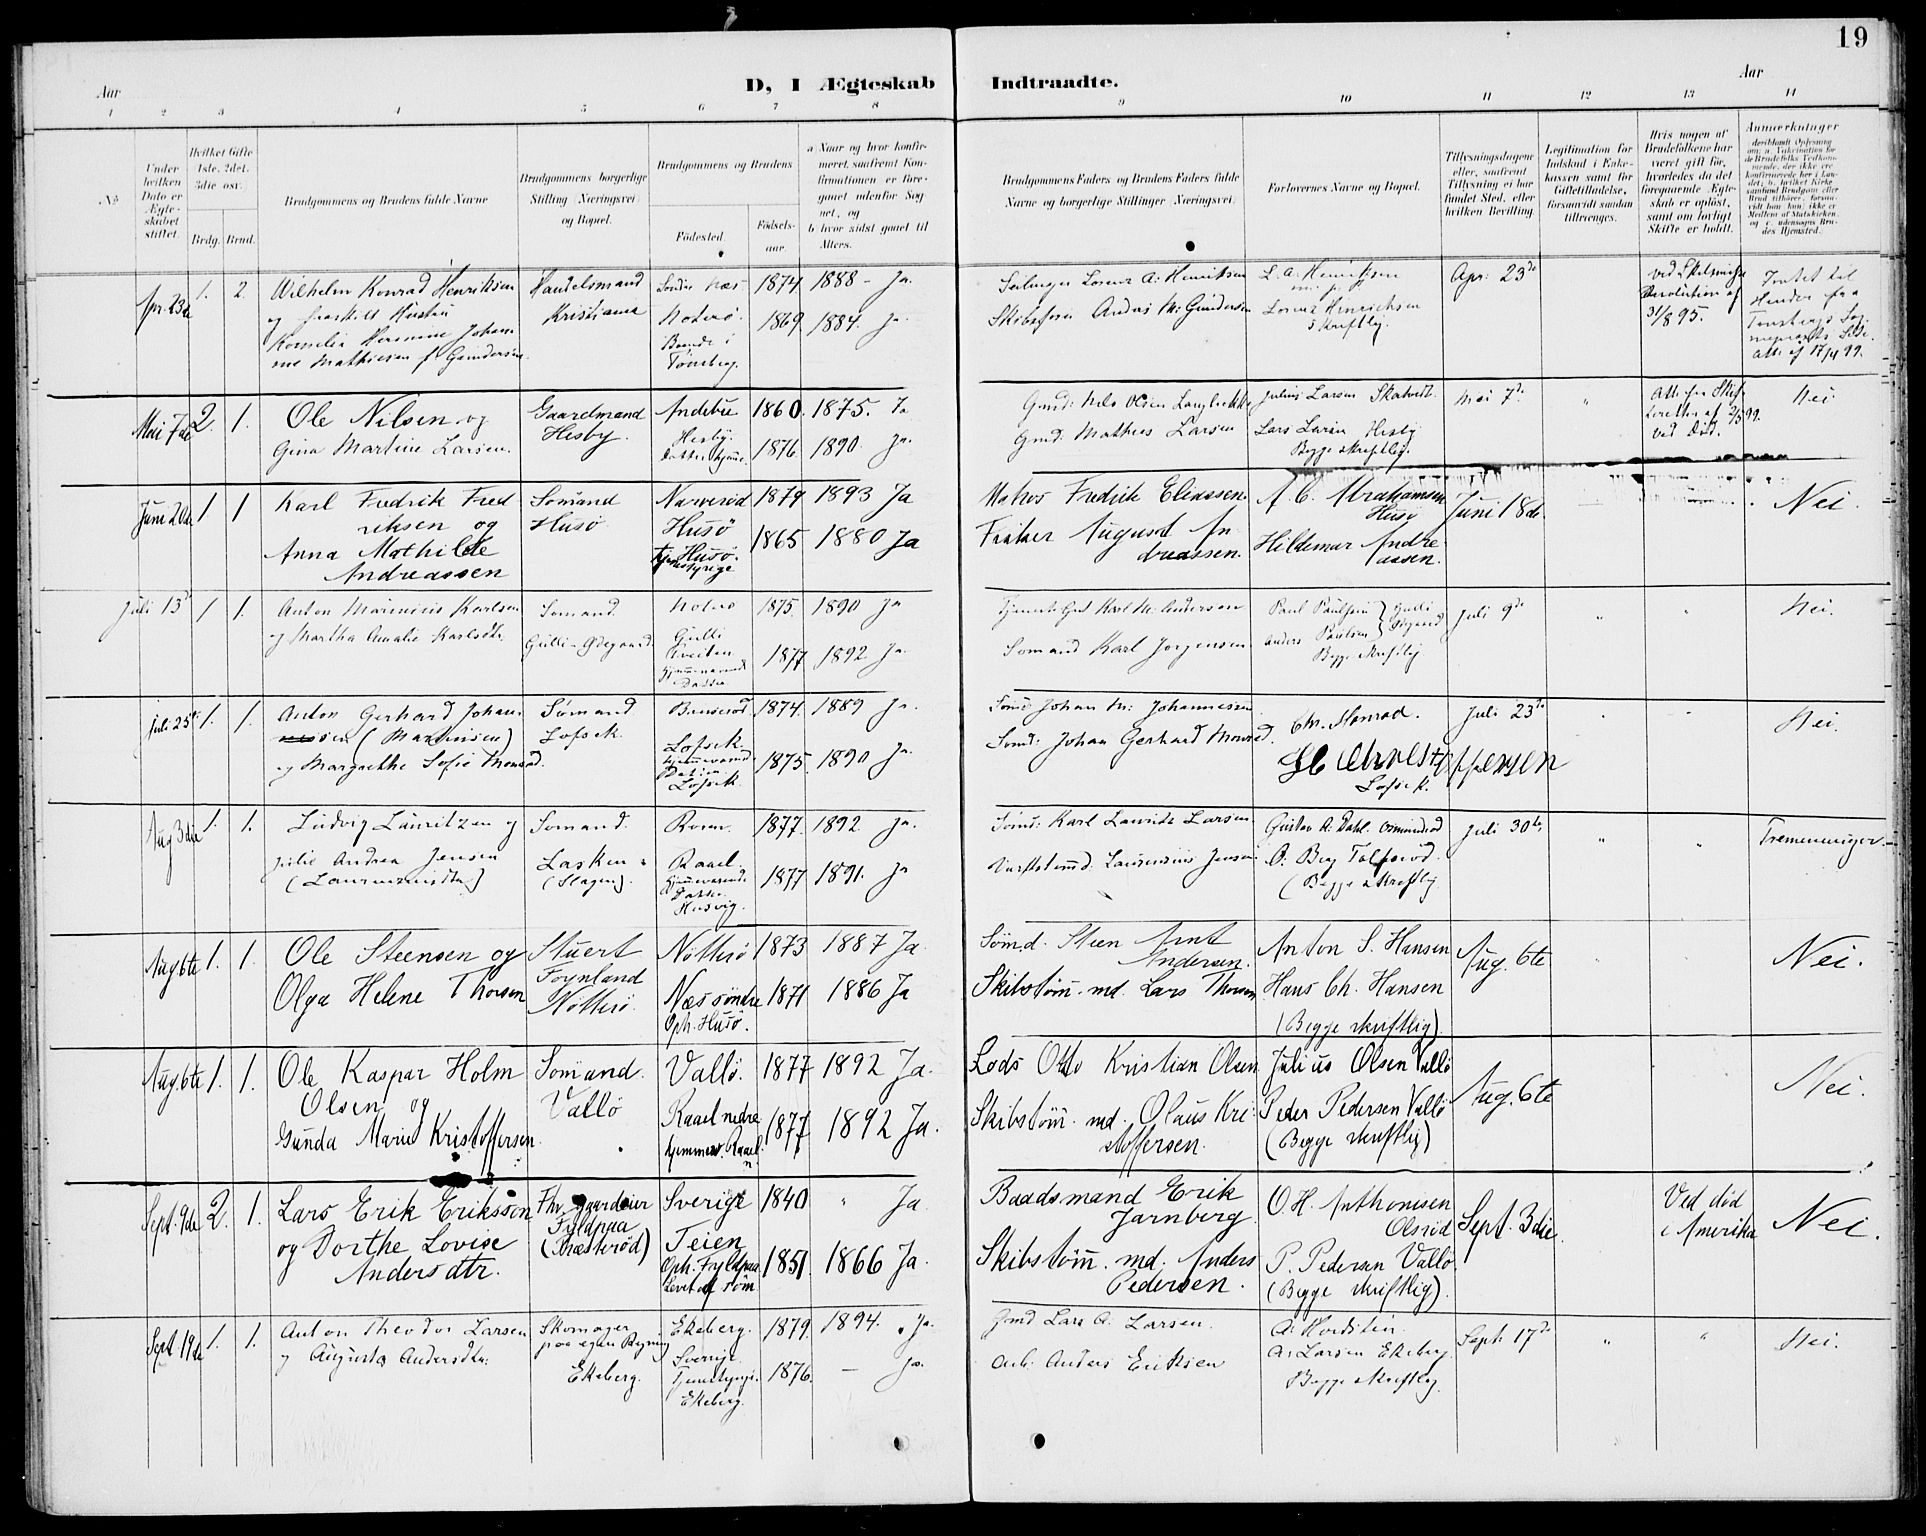 19
Aar
D, I Ægteskab
Indtraadte.
Aar
1 2 3 4 5 6 7 8 9 10 11 12 13 14
No
Under
hvilken
Dato er
Ægte-
skabet
stiftet.
Hvilket Gifte
1ste, 2det,
3die osv.
Brdg.
Brud.
Brudgommens og Brudens fulde Navne
Brudgommens borgerlige
Stilling (Næringsvei)
og Bopæl.
Brudgommens og Brudens
Fødested.
Fødsels-
aar.
a Naar og hvor konfir-
meret, saafremt Kon-
firmationen er fore-
gaaet udenfor Sog-
net, og
b hvor sidst gaaet til
Alters.
Brudgommens Faders og Brudens Faders fulde
Navne og borgerlige Stillinger (Næringsvei).
Forlovernes Navne og Bopæl.
Tillysningsdagene
eller, saafremt
Tillysning ei har
fundet Sted, efter
hvilken Bevilling.
Legitimation for
Indskud i Enke-
kassen samt for
Giftetilladelse,
forsaavidt saadan
tiltrænges.
Hvis nogen af
Brudefolkene har
været gift før,
hvorledes da det
foregaaende Ægte-
skab er opløst,
samt om lovligt
Skifte er holdt.
Anmærkninger
Apr. 23de 1. 2.
Wilhelm Konrad Henriksen
og fraskilt Hustru
Kornelia Hermine Johan
ne Mathiesen f. Gundersen
Handelsmand
Kristiania
Søndre Næs
Nøterø.
Boende i
Tønsberg.
1874 1888 - Ja.
1869 1884. Ja.
Lorenz A. Henriksen
Skibsfører Anders M. Gundersen
L. A. Henriksen
Lorenz Hinrichsen
Skriftlig.
Apr: 23de
Resolution af
31/8 95.
Mai 7de 2. 1.
Ole Nilsen og
Gina Martine Larsen.
Gaardmand
Hesby.
Andebu
Hesby.
Datter hjemme.
1860. 1875. Ja
1876. 1890. Ja.
Gmd: Nils Olsen
Gmd: Mathias Larsen
Julius Larsen Skatvedt.
Lars Larsen Hesby
Begge skriftlig.
Mai 7de
ved Død.
Nei
Juni 20de 1 1
Karl Fredrik Fred
riksen og
Anna Mathilde
Andreassen
Sømand
Husø
Narverød
Husø
Husø.
1879 1893 Ja
1865 1880 Ja
Matros Fredrik Eliassen
August An
dreassen.
A. C. Abrahamsen
Husø
Hildemar Andre
assen.
Juni 18de
Nei.
Juli 13de 1 1.
Anton Marinius Karlsen
og Martha Amalie Karlsdtr.
Sømand
Gulli-Ødegaard.
Noterø
Gulli
Kveiten
Hjemmeværende
Datter
1875. 1890 Ja
1877 1892. Ja.
Karl M. Andersen
Sømand Karl Jørgensen
Paul Paulsen
Anders Paulsen
Begge skriftlig
Juli 9de
Nei.
Juli 25de 1. 1.
Anton Gerhard Johan
sen (Marthinsen)
og Margrethe Sofie Monrad.
Sømand
Lofsek.
Lofsek
Hjemmeværende
Datter
Lofsek.
1874. 1889 Ja.
1875. 1890 Ja.
Sømd: Johan M: Johannessen
Sømd: Johan Gerhard Monrad.
Chr. Monrad.
H Christoffersen
Lofsek.
Juli 23de
Nei.
Aug 3die 1. 1.
Ludvig Lauritzen og
Julie Andrea Jensen
Sømand.
Lasken
(Slagen).
Rosen.
Raael.
Hjemmeværende
Datter
Husvig.
1877. 1892. Ja.
1877 1891. Ja
Sømd: Karl Lauritz Larsen
Laurenzius Jensen
Gustav A. Dahl.
O. Berg Tolfsrød.
(Begge skriftlig
Juli 30te
Tremenninger.
Aug 6te 1. 1.
Ole Steensen og
Olga Helene Thorsen
Stuert
Føynland
Nøtterø.
Nøtterø
Næs søndre
Oph. Husø.
1873 1887 Ja.
1871 1886 Ja
Sømd. Steen Arnt
Andersen.
Skibstøm. md. Lars Thorsen
Anton S. Hansen
Hans Ch. Hansen
(Begge skriftlig).
Aug. 6te
Nei.
Aug. 6te 1. 1.
Ole Kaspar Holm
Olsen og
Gunda Marie Kristoffersen.
Sømand.
Vallø
Vallø.
Raael nedre
hjemmev. Raael
n.
1877 1892 Ja.
1877 1892 Ja.
Lods Otto Kristian Olsen
Skibstøm. md. Olaus Kri-
stoffersen.
Julius Olsen Vallø
Peder Pedersen Vallø
(Begge skriftlig)
Aug. 6te
Nei.
Sept. 9de 2. 1.
Lars Erik Eriksson
og Dorthe Lovise
Andersdtr.
Fhv. gaardeier
Fyldpaa
(Træsterød)
Sverige
Teien
Oph. Fyldpaa
1840 " Ja
1851 1866 Ja.
Baadsmand Erik
Jarnberg
Skibstøm. md. Anders
Pedersen.
O. H. Anthonisen
Olsrød
P. Pedersen Vallø
(Begge skriftlig).
Sept. 3die.
Ved død
i Amerika
Nei.
Sept 19de 1. 1.
Anton Theodor Larsen
og Augusta Andersdtr:
Skomager
paa egen Regning
Ekeberg.
Ekeberg.
Sverrige.
Tjenestepige.
Ekeberg.
1879. 1894. Ja.
1876. — Ja.
Gmd Lars A. Larsen.
Arb: Anders Eriksen
A. Larsen Ekeberg.
Begge skriftlig.
Sept 17de
Nei.